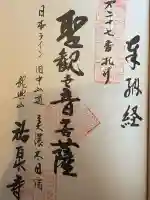 奉納経
六二十七番札所
聖観世音菩薩
日本ライン 旧中山道 美濃太田宿
龍興山
祐泉寺